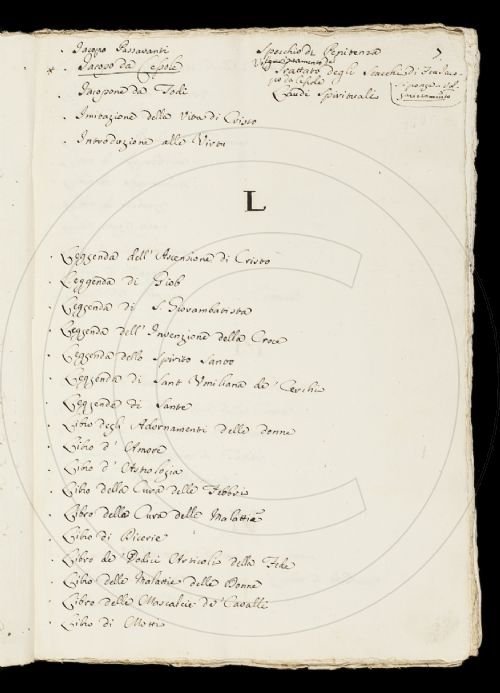 Jacopo Passavanti Specchio di Penitenza 7.
* Jacopo da Cessole Volgarizzamento del
Trattato degli Scacchi di Fra Jaco-
po da Cessole
Jacopone da Todi Laudi Spirituali
Imitazione della Vita di Cristo
Introduzione alle Virtù
L
Leggenda dell'Ascensione di Cristo
Leggenda di Giob
Leggenda di S. Giovambatista
Leggenda dell'Invenzione della Croce
Leggenda dello Spirito Santo
Leggenda di Sant'Umiliana de' Cerchi
Leggende di Sante
Libro degli Adornamenti delle donne
Libro d'Amore
Libro d'Astrologia
Libro della Cura delle Febbri
Libro della Cura delle Malattie
Libro di Dicerie
Libro de' Dodici Articoli della Fede
Libro delle Malattie delle Donne
Libro delle Mascalcie de' Cavalli
Libro di Motti